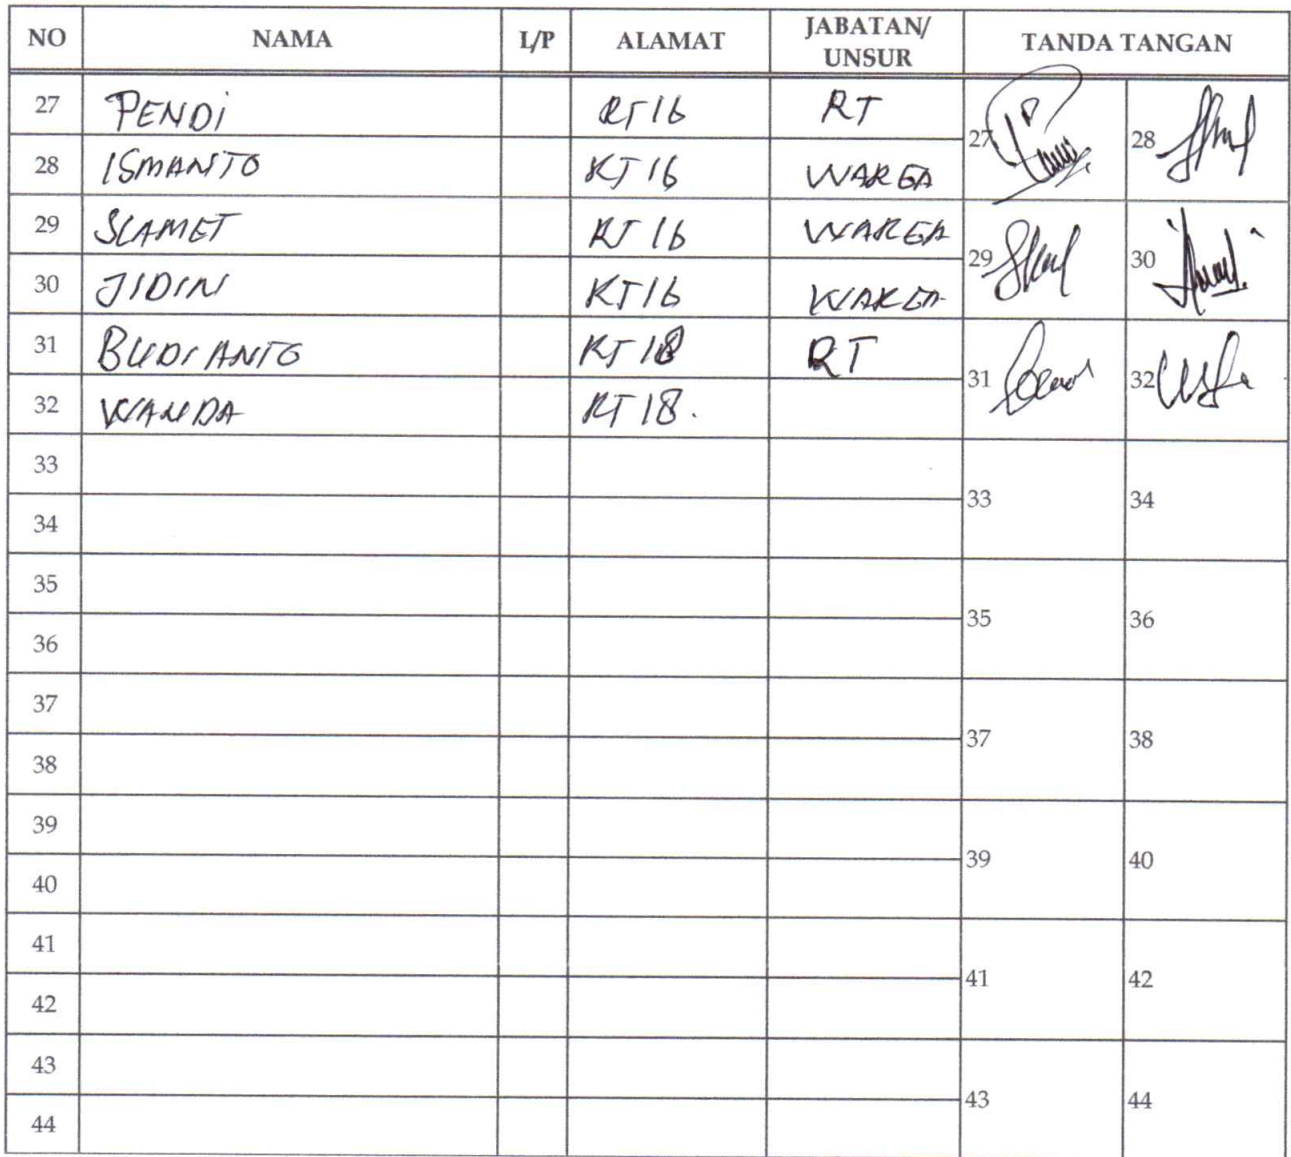 NO NAMA L/P ALAMAT JABATAN/ UNSUR TANDA TANGAN
27 PENDI RT 16 RT 27 28
28 ISMANTO RT 16 WARGA
29 SLAMET RT 16 WARGA 29 30
30 JIDIN RT 16 WARGA
31 BUDIANTO RT 18 RT 31 32
32 WANDA RT 18.
33 33 34
34
35 35 36
36
37 37 38
38
39 39 40
40
41 41 42
42
43 43 44
44